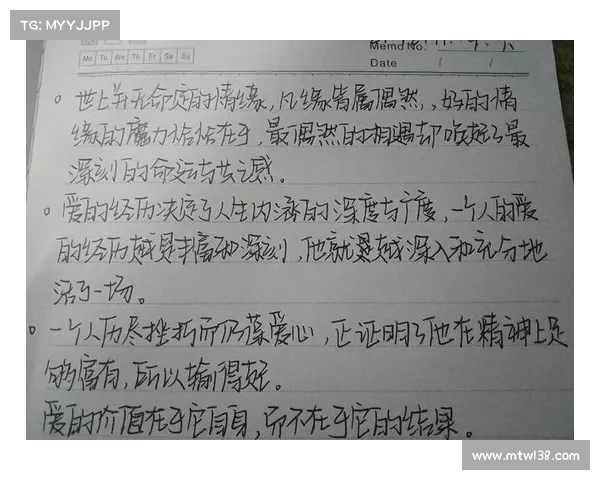 TG: MYYJJPP
Memo No.
Mo Tu We Th Fr Sa Su
Date / /
世上并无命定的情缘，凡缘皆属偶然，好的情
缘的魔力恰恰在于，最偶然的相遇却唤起了最
深刻的命运与共之感。
爱的经历决定了人生内涵的深度与广度，一个人的爱
的经历越是丰富和深刻，他就是越深入和充分地
活了一场。
一个人历尽挫折而仍葆爱心，正证明了他在精神上足
够富有，所以输得起。
爱的价值在于它自身，而不在于它的结果。
www.mtwl38.com